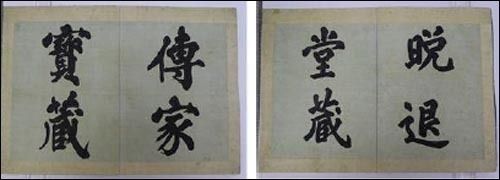 傳家
寶藏
晩退
堂藏